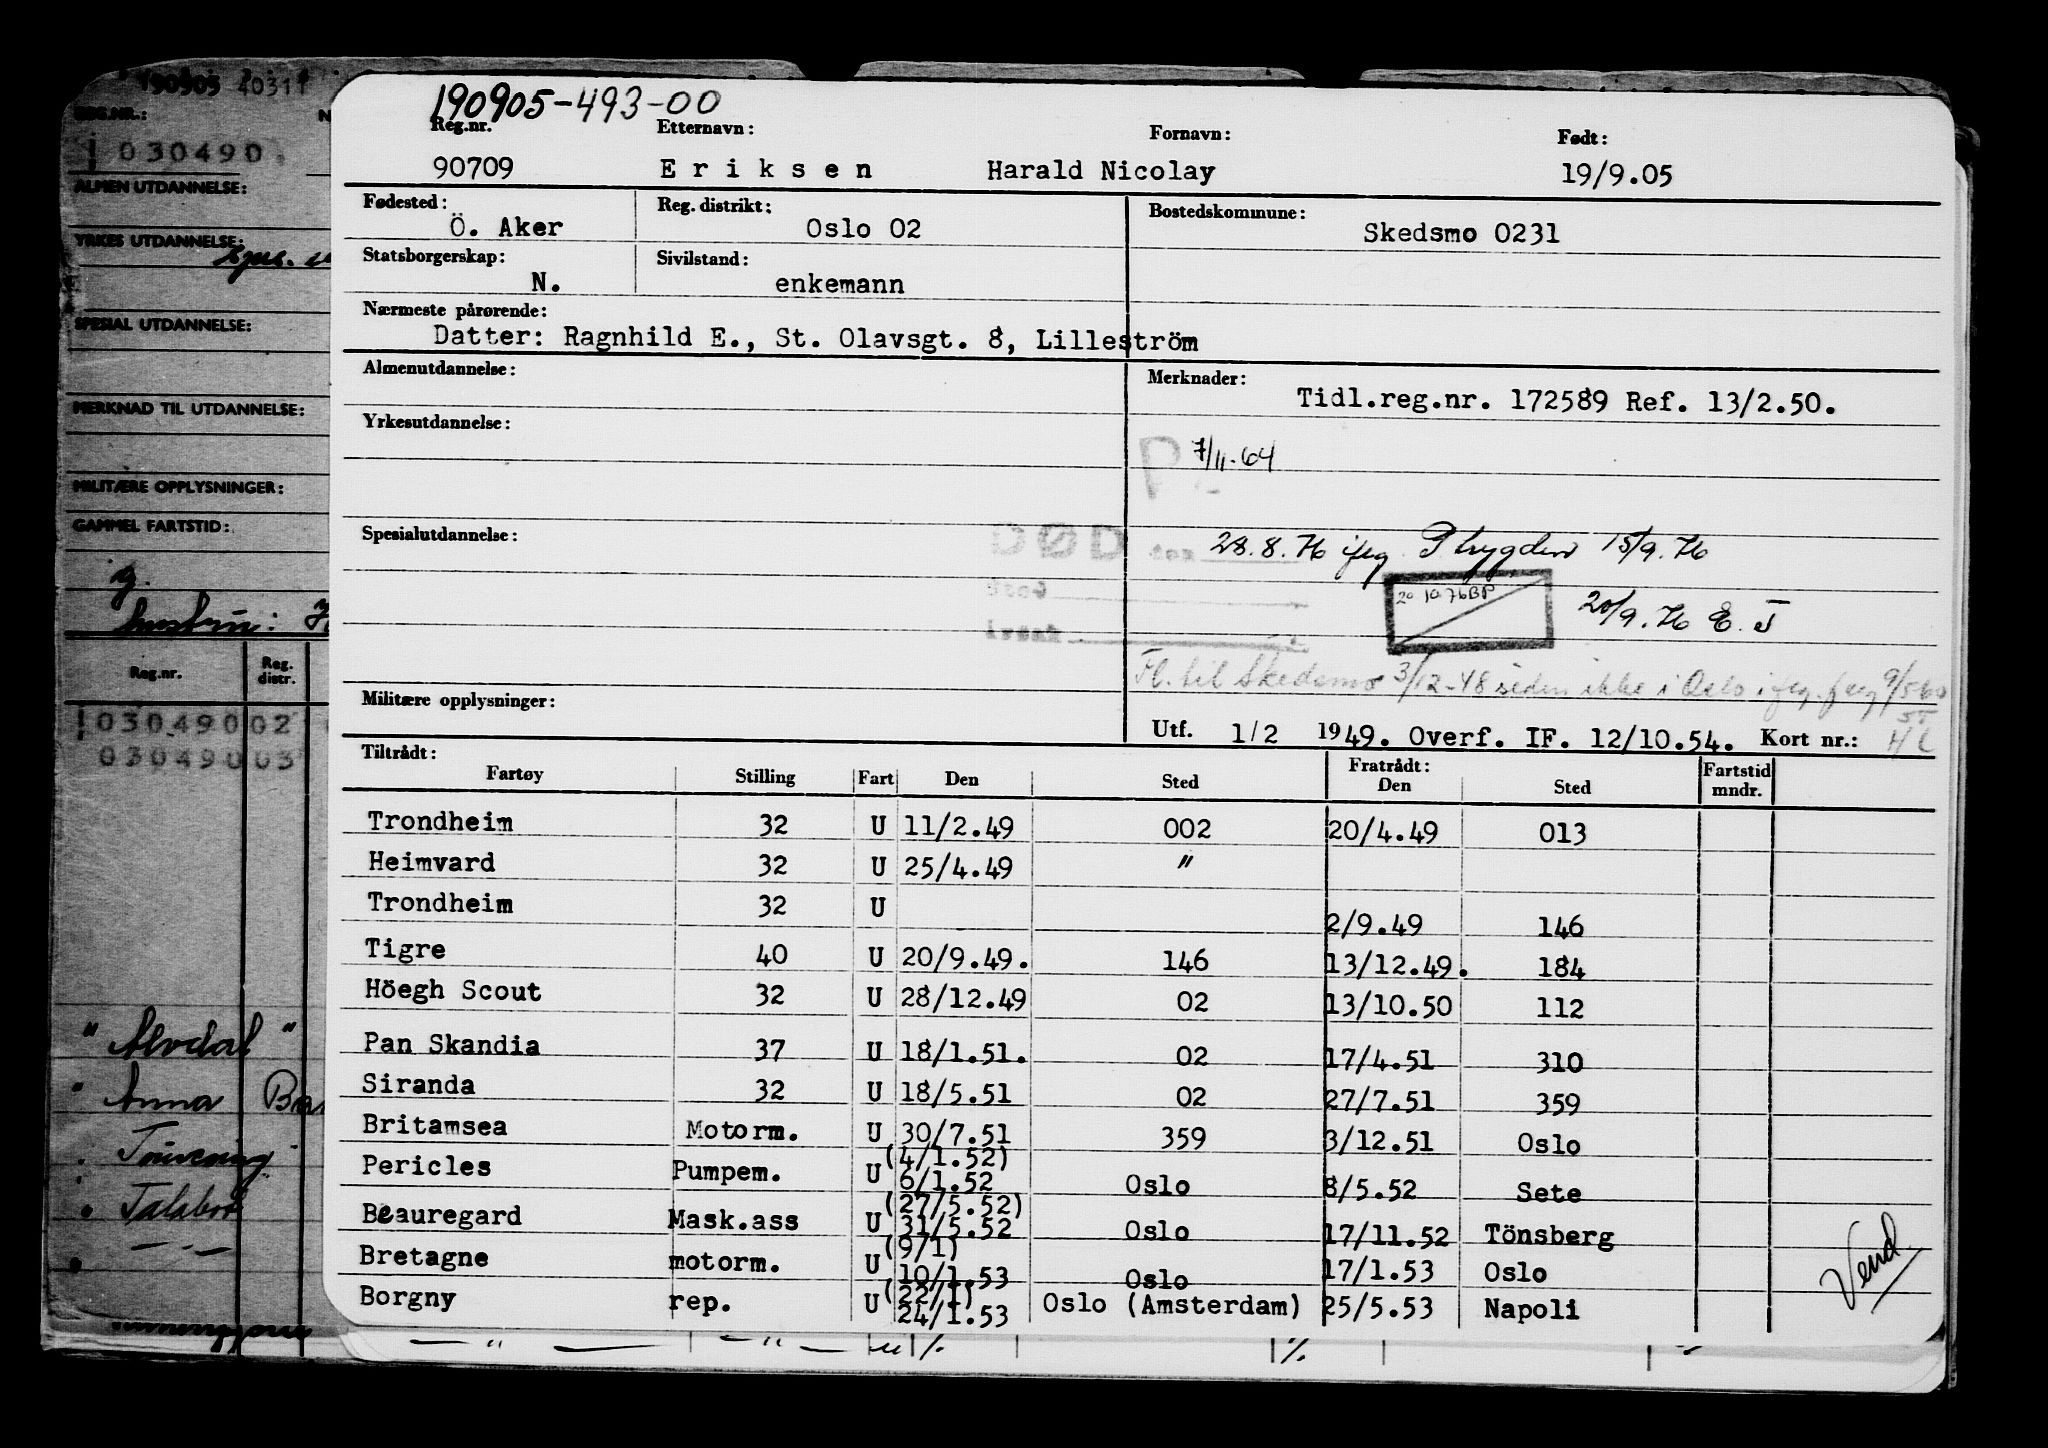 190905
REG.NR.:
030490
ALMEN UTDANNELSE:
YRKES UTDANNELSE:
SPESIAL UTDANNELSE:
MERKNAD TIL UTDANNELSE:
MILITÆRE OPPLYSNINGER:
GAMMEL FARTSTID:
hustru:
Reg.nr. Reg. distr.
030490 02
030490 03
" Alvdal "
" Anna
190905-493-00
Reg.nr. Etternavn: Fornavn: Født:
90709 Eriksen Harald Nicolay 19/9.05
Fødested: Reg. distrikt: Bostedskommune:
Ö. Aker Oslo 02 Skedsmo 0231
Statsborgerskap: Sivilstand:
N. enkemann
Nærmeste pårørende:
Datter: Ragnhild E., St. Olavsgt. 8, Lilleström
Almenutdannelse: Merknader:
Tidl.reg.nr. 172589 Ref. 13/2.50.
Yrkesutdannelse:
P 7/11.64
Spesialutdannelse: DØD 28.8.76 iflg. P trygden 15/9.76
20/9.76 E.J
årsak
Fl. til Skedsmo 3/12-48 siden ikke i Oslo
Militære opplysninger:
Utf. 1/2 1949. Overf. IF. 12/10.54. Kort nr.:
Tiltrådt: Fratrådt:
Fartøy Stilling Fart Den Sted Den Sted Fartstid mndr.
Trondheim 32 U 11/2.49 002 20/4.49 013
Heimvard 32 U 25/4.49 "
Trondheim 32 U 2/9.49 146
Tigre 40 U 20/9.49. 146 13/12.49. 184
Höegh Scout 32 U 28/12.49 02 13/10.50 112
Pan Skandia 37 U 18/1.51. 02 17/4.51 310
Siranda 32 U 18/5.51 02 27/7.51 359
Britamsea Motorm. U 30/7.51 359 3/12.51 Oslo
Pericles Pumpem. U (4/1.52) 6/1.52 Oslo 8/5.52 Sete
Beauregard Mask.ass U (27/5.52) 31/5.52 Oslo 17/11.52 Tönsberg
Bretagne motorm. U (9/1) 10/1.53 Oslo 17/1.53 Oslo
Borgny rep. U (22/1) 24/1.53 Oslo (Amsterdam) 25/5.53 Napoli
Vend